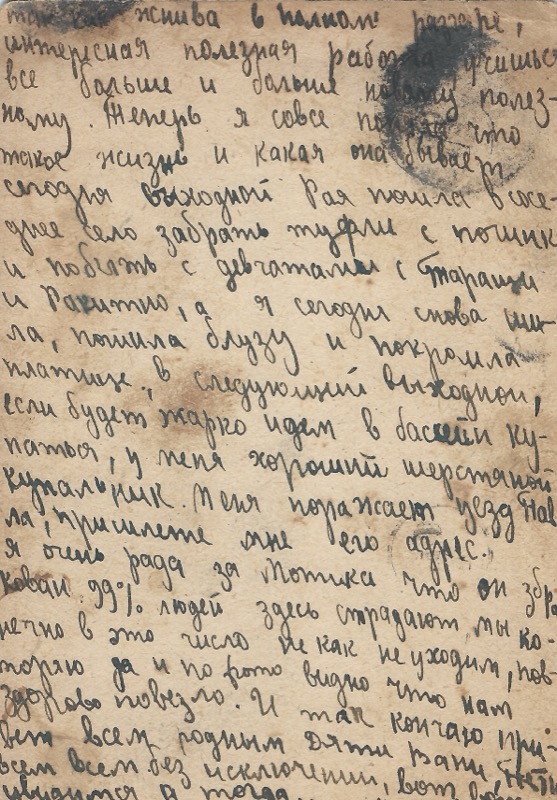 так как жнива в полном разгаре,
интересная полезная работа учишься
все больше и больше новому полез-
ному. Теперь я совсе поняла что
такое жизнь и какая она бывает
сегодня выходной Рая пошла в сосе-
днее село забрать туфли с починк
и побчать с девчатами с Таращи
и Ракитно, а я сегодня снова ши-
ла, пошила блузу и покроила
платице, в следующий выходной,
если будет жарко идем в басейн ку-
паться, у меня хороший шерстяной
купальник. Меня поражает уезд Пав
ла, пришлете мне его адрес.
я очень рада за Мотика что он збро
кован. 99% людей здесь страдают, мы ко-
нечно в это число не как не уходим, пов-
торяю да и по фото видно что нам
здорово повезло. И так кончаю при-
вет всем родным Дяти Вани,
всем всем без исключений, вот
увидимся а тогда